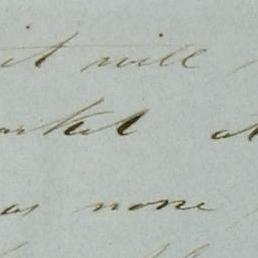 it will
arket at
as none